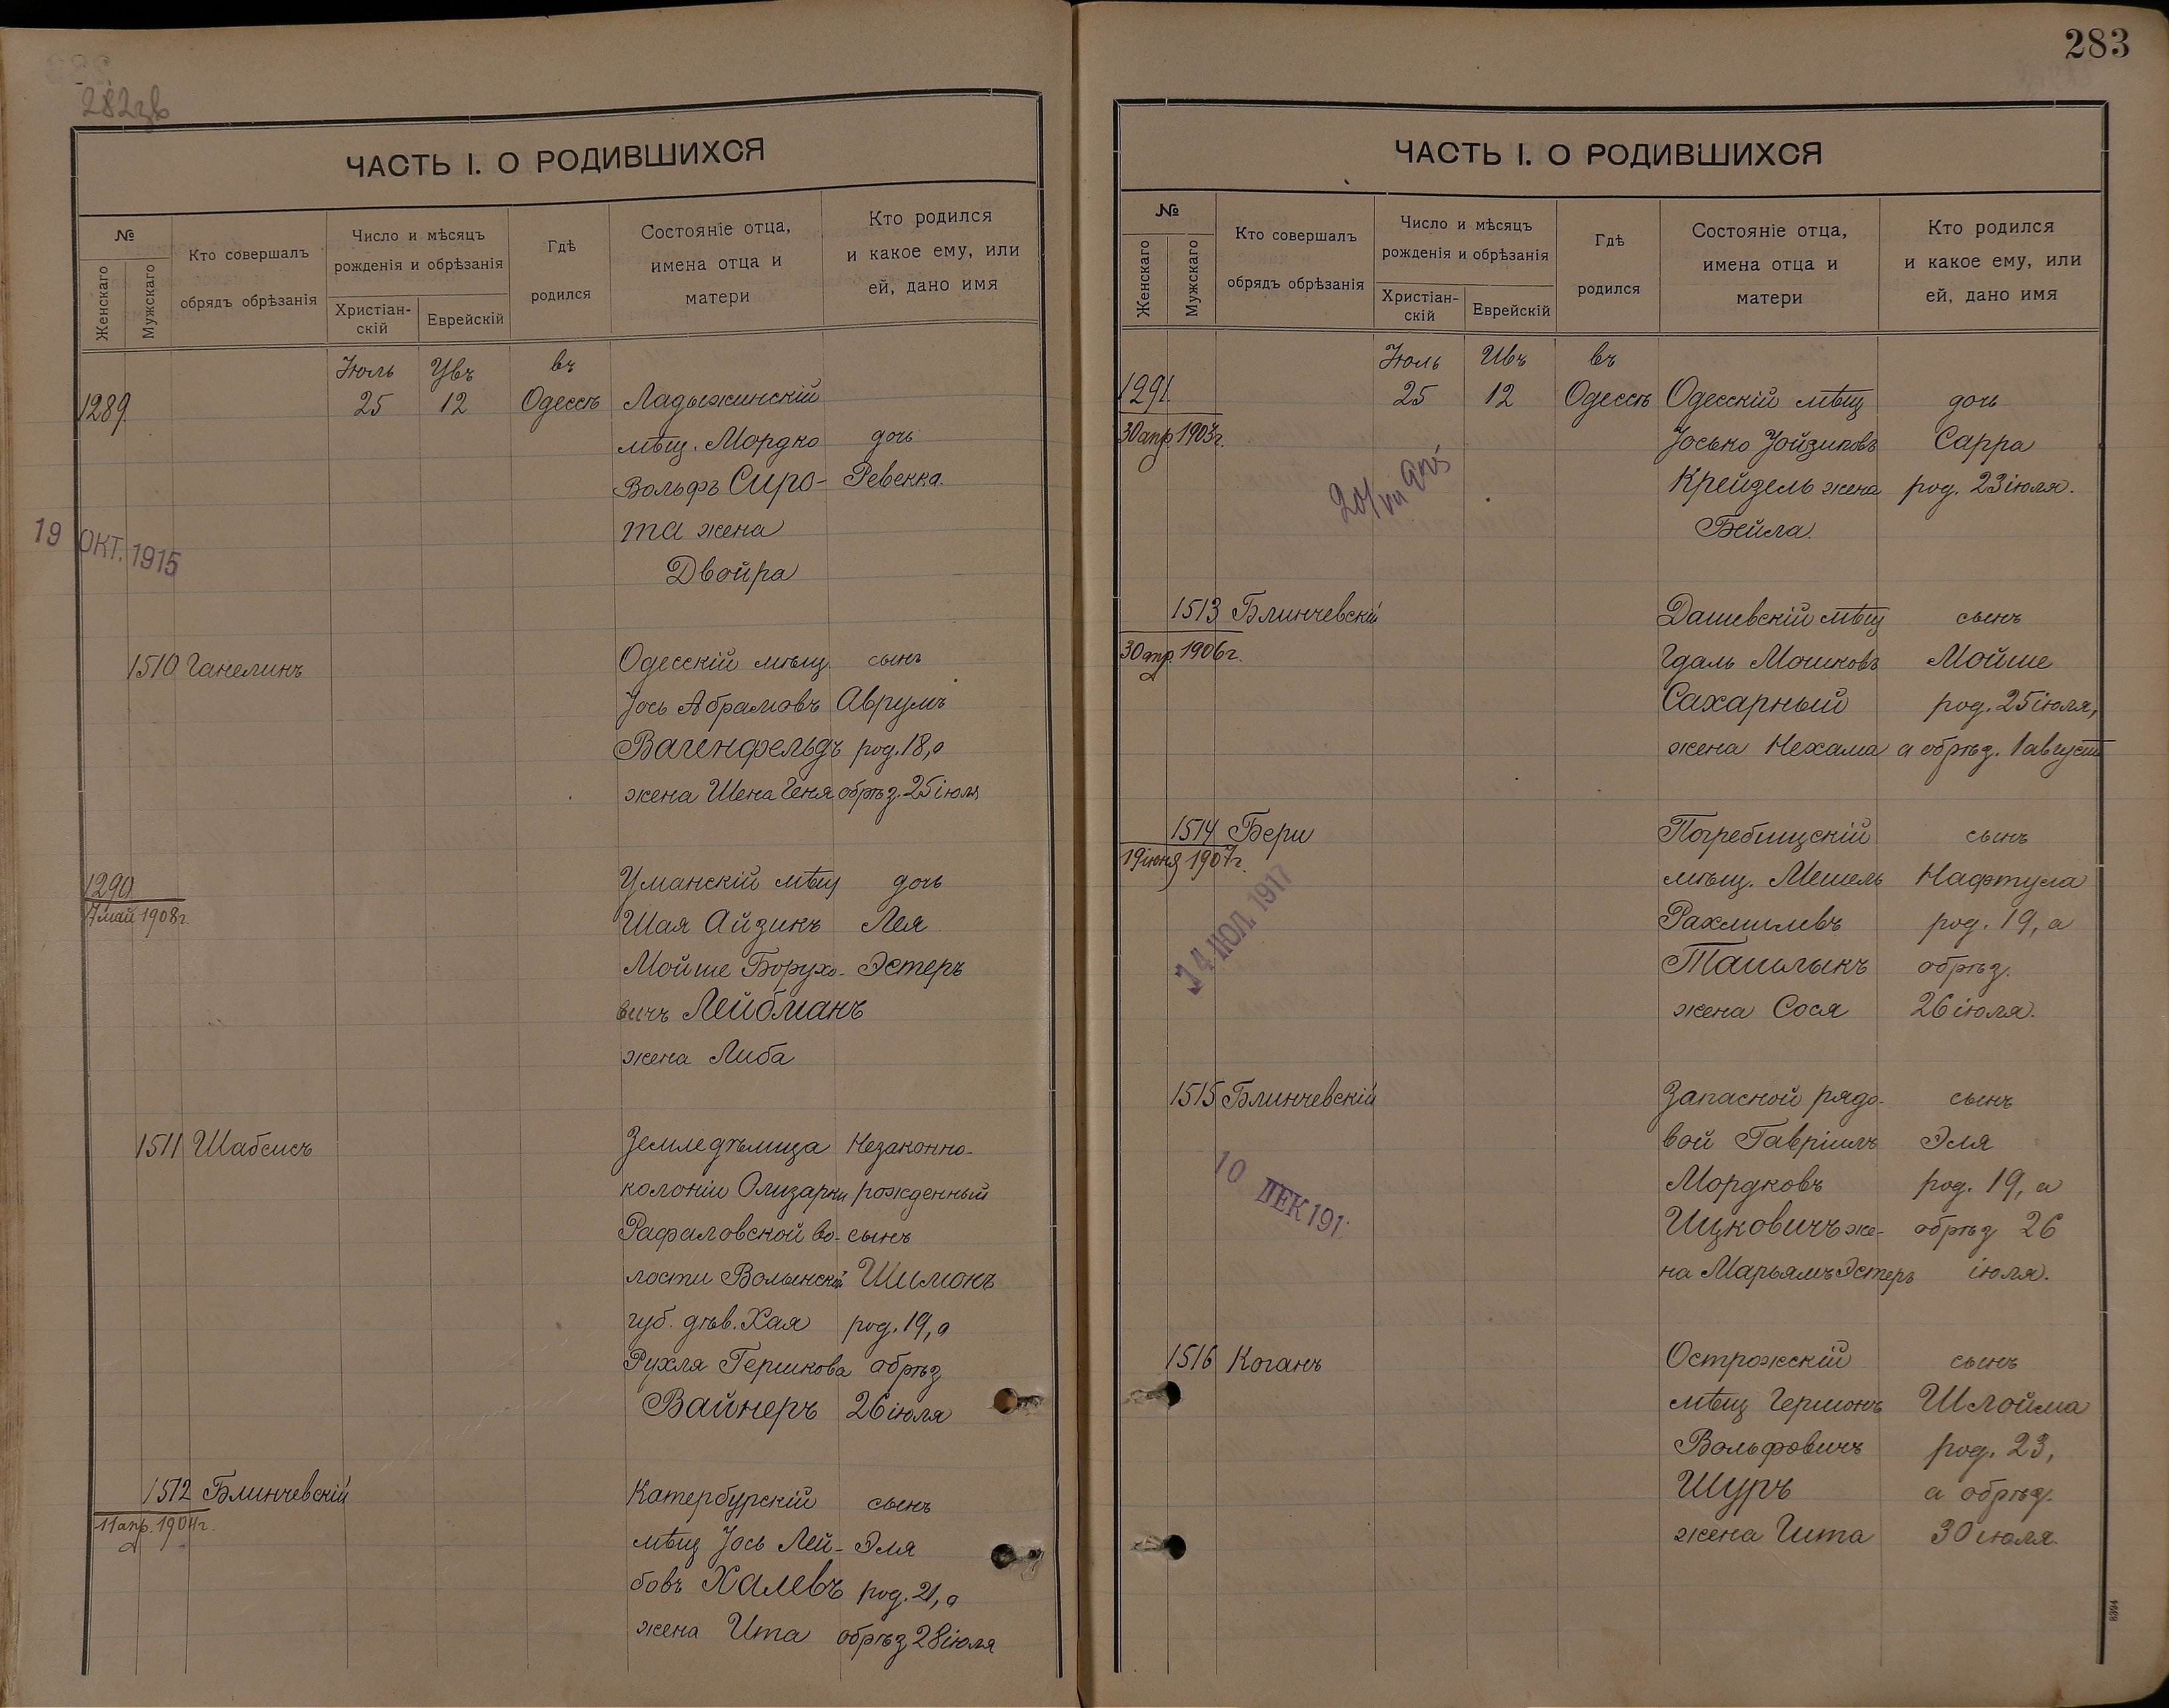 282 зв
ЧАСТЬ I. О РОДИВШИХСЯ
№
Женскаго
Мужскаго
Кто совершалъ
обрядъ обрѣзанія
Число и мѣсяцъ
рожденія и обрѣзанія
Христіан-
скій
Еврейскій
Гдѣ
родился
Состояніе отца,
имена отца и
матери
Кто родился
и какое ему, или
ей, дано имя
Іюль Увъ въ
1289 25 12 Одессѣ Ладыжинскій
мѣщ. Мордко дочь
Вольфъ Сиро- Ревекка.
та жена
19 ОКТ. 1915
Двойра
1510 Ганелинъ Одесскій мѣщ. сынъ
Іось Абрамовъ Аврумъ
Вагенфельдъ род. 18, а
жена Шена Геня обрѣз. 25 іюля
1290 Уманскій мѣщ дочь
17 май 1908 г. Шая Айзикъ Лея
Мойше Борухо- Эстеръ
вичъ Лейбманъ
жена Либа
1511 Шабсисъ Земледѣлица Незаконно-
колоніи Олизарки рожденный
Рафаловской во- сынъ
лости Волынской Шимонъ
губ. дѣв. Хая род. 19, а
Рухля Гершкова обрѣз
Вайнеръ 26 іюля
1512 Блинчевскій Катербурскій сынъ
11 апр. 1904 г. мѣщ Іось Лей- Эля
бовъ Халевъ род. 21, а
жена Ита обрѣз 28 іюля
283
ЧАСТЬ I. О РОДИВШИХСЯ
№
Женскаго
Мужскаго
Кто совершалъ
обрядъ обрѣзанія
Число и мѣсяцъ
рожденія и обрѣзанія
Христіан-
скій
Еврейскій
Гдѣ
родился
Состояніе отца,
имена отца и
матери
Кто родился
и какое ему, или
ей, дано имя
Іюль Увъ въ
1291 25 12 Одессѣ Одесскій мѣщ дочь
30 апр. 1903 г. Іосько Іойзиповъ Сарра
Крейдель жена род. 23 іюля.
Бейла.
1513 Блинчевскій Дашевскій мѣщ сынъ
30 апр. 1906 г. Гдаль Мошковъ Мойше
Сахарный род. 25 іюля,
жена Нехама а обрѣз. 1 августа
1514 Бери Погребищскій сынъ
19 іюня 1907 г. мѣщ. Мешель Нафтула
Рахмилевъ род. 19, а
14 ИЮЛ 1917
Ташлыкъ обрѣз.
жена Сося 26 іюля.
1515 Блинчевскій Запасной рядо- сынъ
вой Гавріилъ Эля
10 ДЕК 191
Мордковъ род. 19, а
Ицковичъ же- обрѣз 26
на Марьямъ Эстеръ іюля.
1516 Коганъ Острожскій сынъ
мѣщ Гершонъ Шлойма
Вольфовичъ род. 23,
Шуръ а обрѣз.
жена Гита 30 іюля
8394